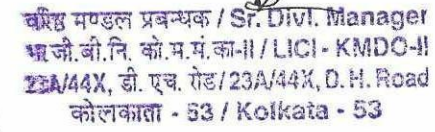 वरिष्ठ मण्डल प्रबन्धक / Sr. Divl. Manager
भा.जी.बी.नि. को.म.मं.का-II / LICI - KMDO-II
23A/44X, डी. एच. रोड/23A/44X, D.H. Road
कोलकाता - 53 / Kolkata - 53